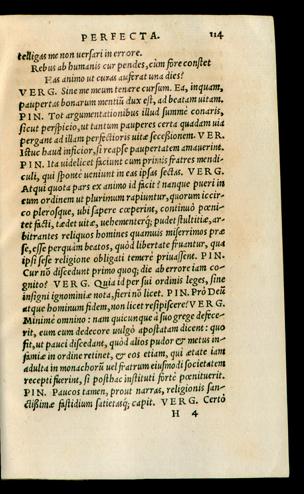 PERFECTA. 114
telligas me non versari in errore.
Rebus ab humanis cur pendes, cùm fore constet
Has animo ut curas auferat una dies?
VERG. Sine me meum tenere cursum. Ea, inquam,
paupertas bonarum mentiũ dux est, ad beatam uitam.
PIN. Tot argumentationibus illud summè conaris,
sicut perspicio, ut tantum pauperes certa quadam uia
pergant ad illam perfectioris uitæ secessionem. VER.
Istuc haud inficior, si reapse paupertatem amauerint.
PIN. Ita uidelicet faciunt cum primis fratres mendi-
culi, qui spõnte ueniunt in eas ipsas sectas. VERG.
Atqui quota pars ex animo id facit? nanque pueri in
eum ordinem ut plurimum rapiuntur, quorum iccir-
co plerosque, ubi sapere cœperint, continuò pœni-
tet facti, tædet uitæ, uehementerq; pudet stultitiæ, ar-
bitrantes reliquos homines quamuis miserrimos præ
se, esse perquàm beatos, quòd libertate fruantur, qua
ipsi sese religione obligati temerè priuassent. PIN.
Cur nõ discedunt primo quoq; die ab errore iam co-
gnito? VERG. Quia id per sui ordinis leges, sine
insigni ignominiæ nota, fieri nõ licet. PIN. Prò Deũ
atque hominum fidem, non licet resipiscere? VERG.
Minimè omnino: nam quicunque à suo grege defece-
rit, eum cum dedecore uulgò apostatam dicent: quo
fit, ut pauci discedant, quòd alios pudor & metus in-
famiæ in ordine retinet, & eos etiam, qui ætate iam
adulta in monachorũ uel fratrum eiusmodi societatem
recepti fuerint, si posthac instituti fortè pœnituerit.
PIN. Paucos tamen, prout narras, religionis san-
ctißimæ fastidium satietasq; capit. VERG. Certò
H 4